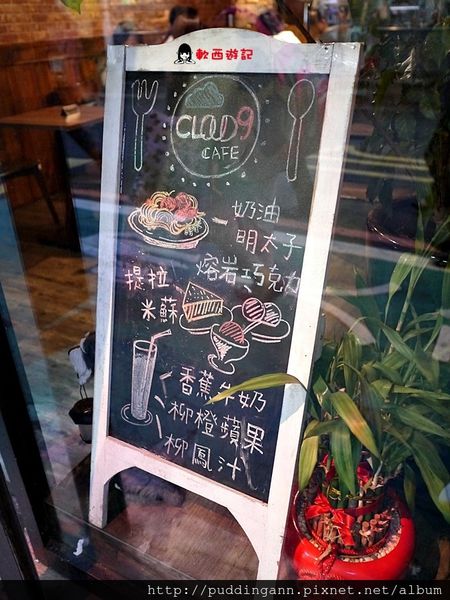 軟西遊記
CLOUD9
CAFE
奶油
明太子
熔岩巧克力
提拉
米蘇
香蕉牛奶
柳橙蘋果
柳鳳汁
http://puddingann.pixnet.net/album